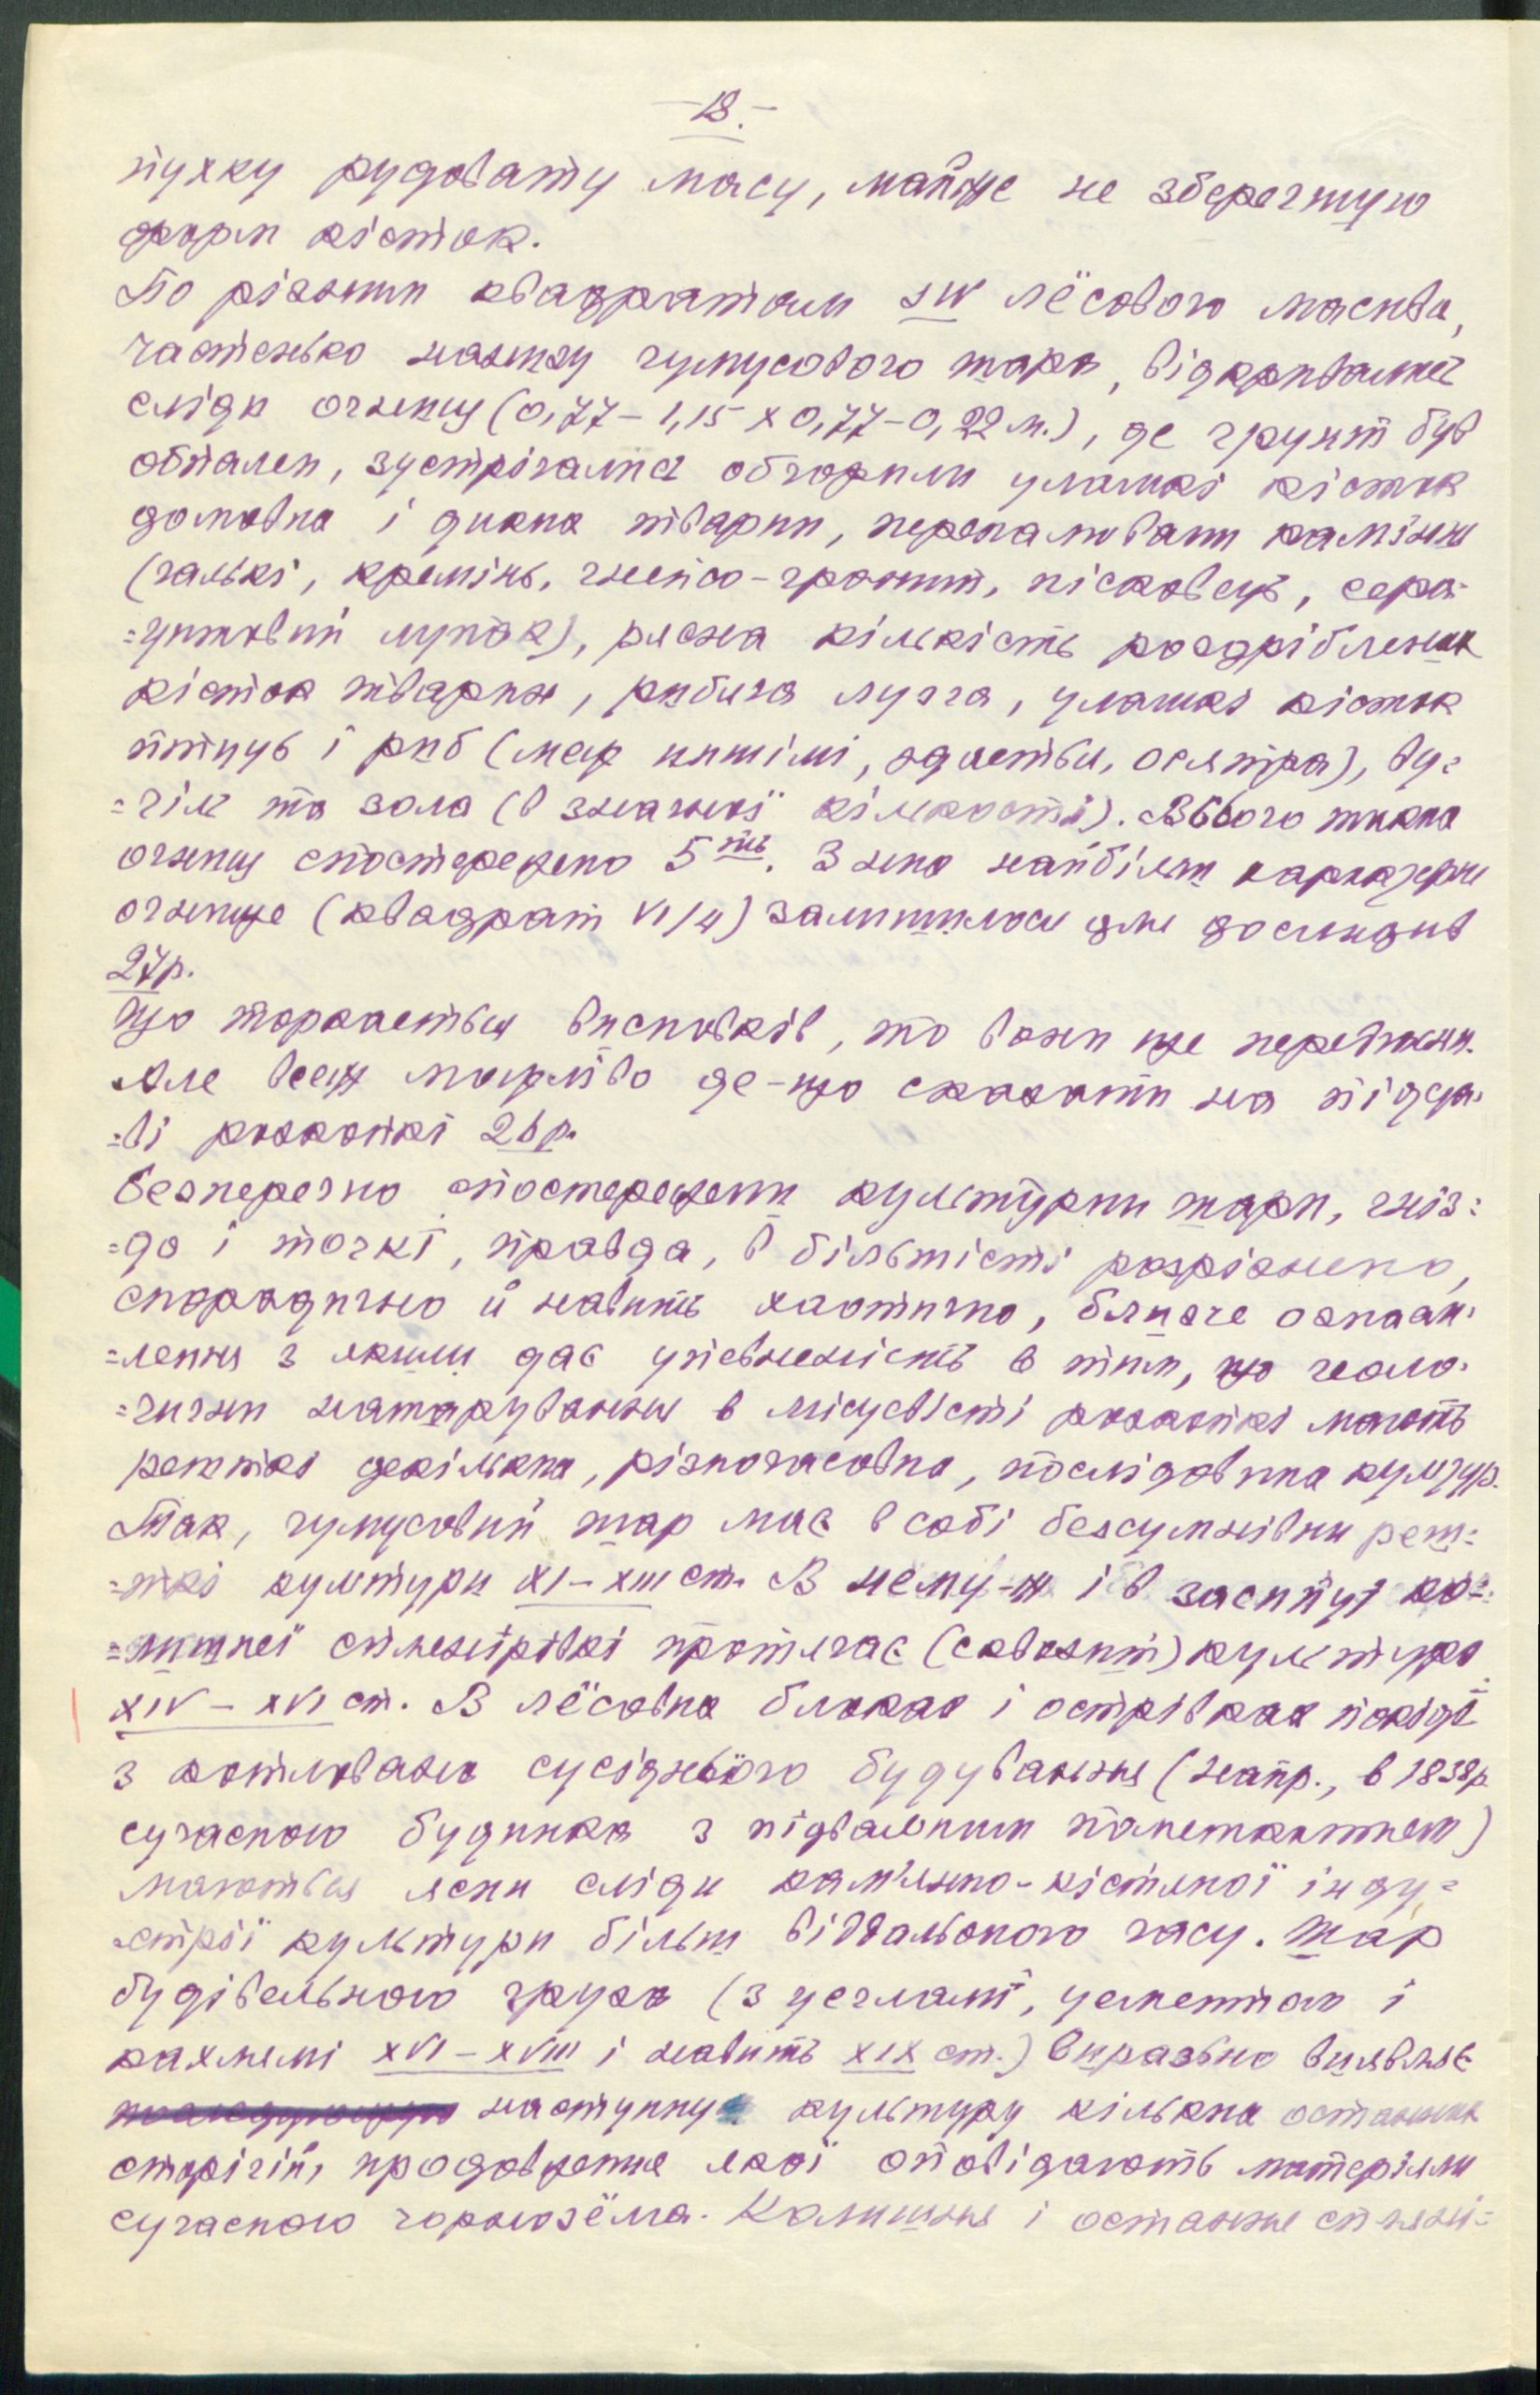 -18.-
пухку рудовату масу, майже не зберегшую
форм кісток.
По різним квадратам SW лёсового масива,
частенько нанизу гумусового шара, відкривались
сліди огнищ (0,77-1,15 x 0,77-0,22 м.), де грунт був
обпален, зустрічались обгорили уламкі кісток
домовых і диких тварин, перепаловани каміння
(галькі, кремінь, гнейсо-граніт, пісковець, сери-
=цитовий лупак), рясна кількість роздрібленых
кісток тварин, рибича лузга, уламкі кісток
птиць і риб (меж иншімі, здается, осятра), ву=
=гіль та зола (в значної кількості). Всього таких
огнищ спостережено 5ть. З них найбільш характерне
огнище (квадрат VI/4) залишилось для дослидив
27р.
Що торкается висновків, то вони ще передчасни.
Але все ж можливо де-що сказати на підста-
=ві розкопкі 26р.
Безперечно спостережени культурни шари, гніз=
=да і точкі, правда, в більшісті розрізнено,
спорадично й навить хаотично, ближче ознаам-
=лення з якими дає упевненність в тим, що геоло-
=гични нашарування в місцевісті розкопкі мають
решткі декількох, різночасовых, послідовних культур.
Так, гумусовий шар має в собі безсумнівни реш=
=ткі культури XI-XIII ст. В нему-ж і в засипці ко=
=лишнеї стненірівкі протягає (сквозит) культура
XIV - XVI ст. В лёсовых блоках і острівках поніде
з котлована сусіднього будування (напр., в 1838р.
сучасного будинка з підвальним помешкантнем)
маються ясни сліди кам'яно-кістяної інду=
=стрії культури більш віддального часу. Шар
будівельного груза (з цеглані, цементом і
кахлямі XVI-XVIII і навить XIX ст.) виразьно виявляє
наступну культуру кількох останних
сторічій, продовження якої оповідають матеріяли
сучасного чорнозёма. Колишня і останне стнені=